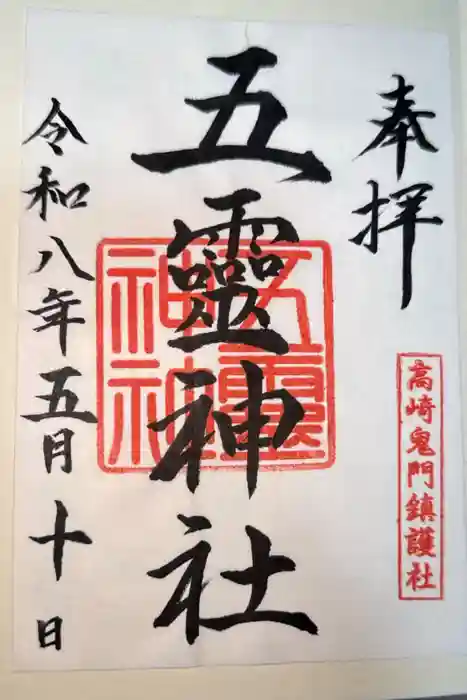 奉拝
高崎鬼門鎮護社
五靈神社
五靈神社
令和八年五月十日